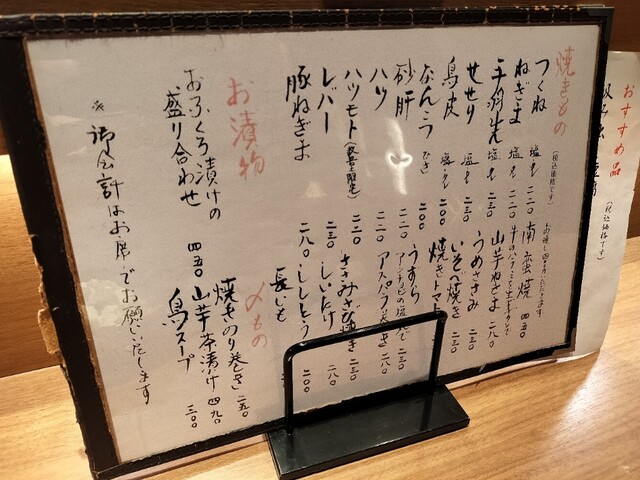 おすすめ品
(税込価格です)
焼きもの
(税込価格です)
つくね 塩・タ 二二〇
ねぎま 塩・タ 二二〇
手羽先 塩・タ 二三〇
せせり 塩・タ 二三〇
鳥皮 塩・タ 二〇〇
なんこつ ひざ 二〇〇
砂肝 二二〇
ハツ 二二〇
ハツモト(数量限定) 二二〇
レバー
豚ねぎま 二八〇
南蛮焼 四五〇
山芋ねぎま 二八〇
うめささみ 二三〇
いそべ焼き 二三〇
焼きトマト
うずら 二三〇
アスパラ
ささみさび焼き 二三〇
しいたけ 二八〇
ししとう 二〇〇
長いも
お漬物
おふくろ漬けの
盛り合わせ 四五〇
〆もの
焼きのり巻き 二五〇
山芋茶漬け 四九〇
鳥スープ 三〇〇
※御会計はお席でお願いたします